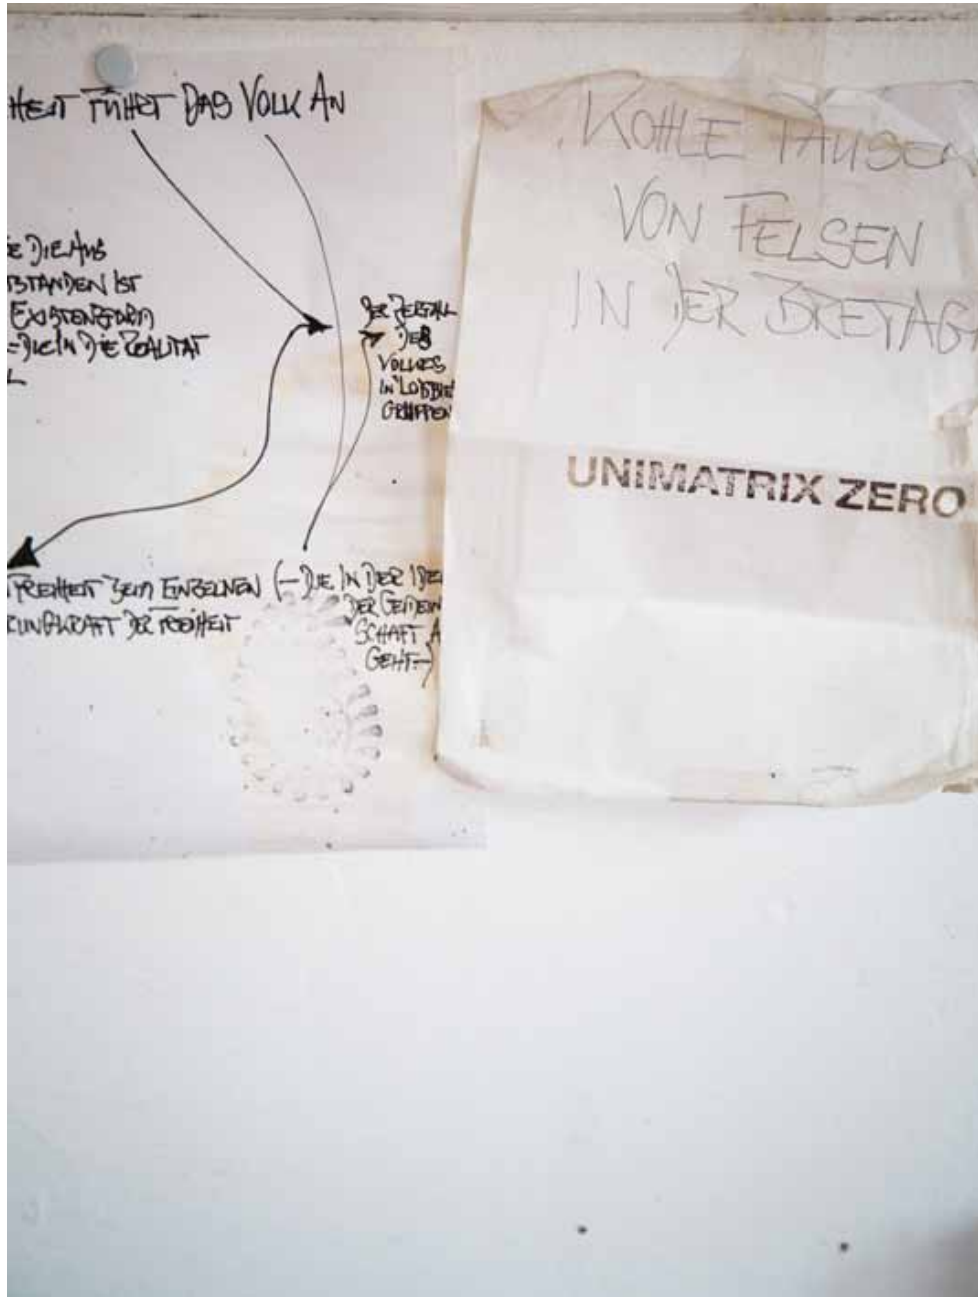 HEIT FÜHRT DAS VOLK AN
E DIE AUS
TSTANDEN IST
EXISTENZFORM
– DIE IN DIE REALITÄT
L
DER ZERFALL
DES
VOLKES
IN LOBBIE
GRUPPEN
FREIHEIT ZUM EINZELNEN (– DIE IN DER IDEE
DER GEMEIN
SCHAFT A
GEHT –)
UNGSKRAFT DER FREIHEIT
KOHLE PAUSEN
VON FELSEN
IN DER BRETAG
UNIMATRIX ZERO